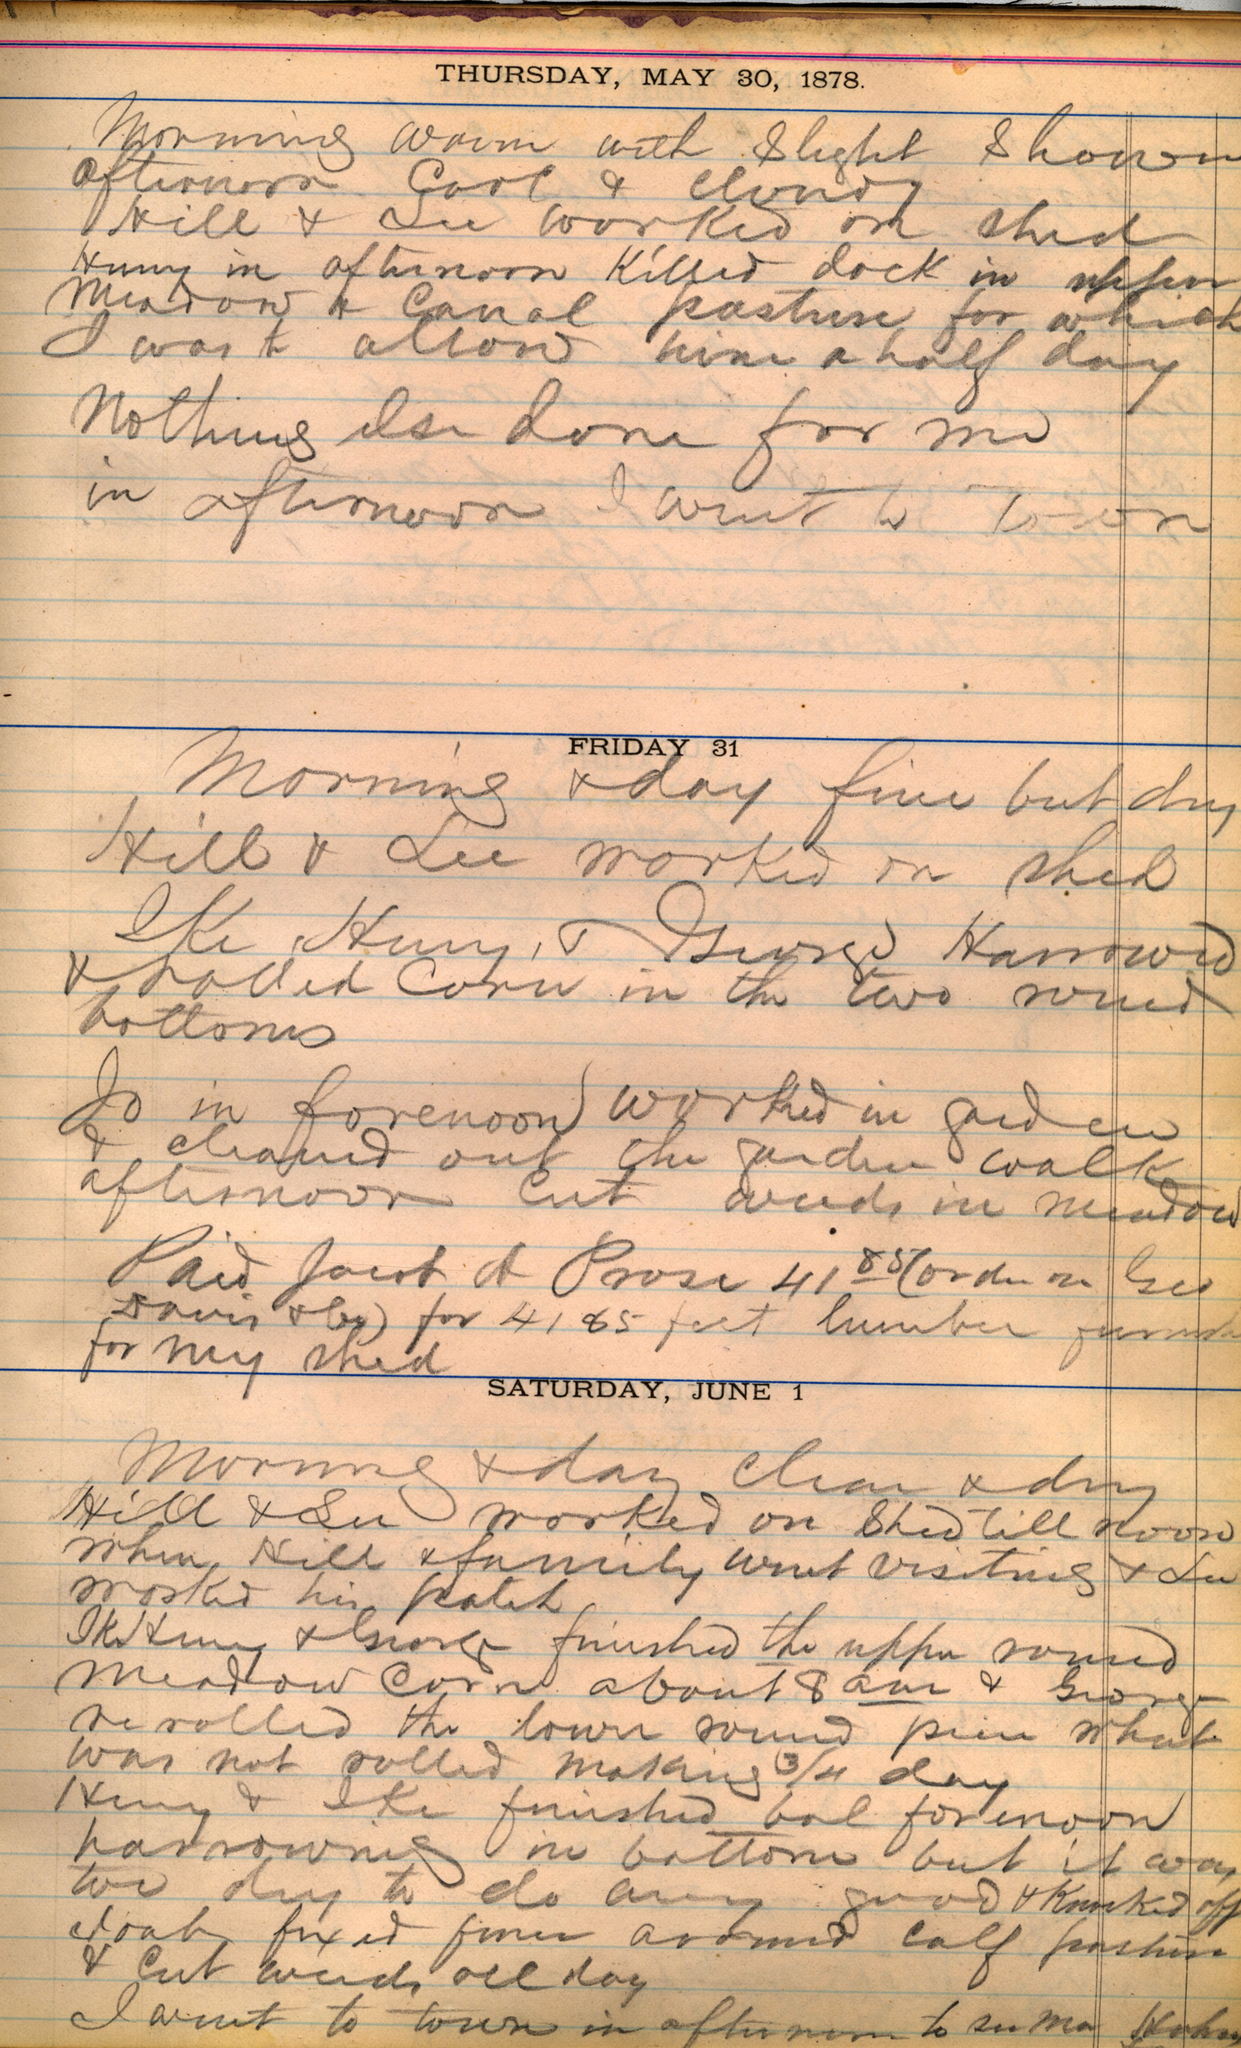 THURSDAY, MAY 30, 1878.
Morning warm with slight shower
afternoon Cool & cloudy
Hill & Lee worked on shed
Henry in afternoon Killed dock in upper
Meadow & Canal pasture for which
I was to allow him a half day
Nothing else done for me
in afternoon I went to Town
FRIDAY 31
Morning & day fine but dry
Hill & Lee worked on shed
Ike, Henry, & George Harrowed
& rolled Corn in the two round
bottoms
Jo in forenoon worked in garden
& cleaned out the garden walks
afternoon Cut weeds in meadow
Paid Jacob A Prose 41 85 (order on Geo
Davis & Co) for 4185 feet lumber
for my shed
SATURDAY, JUNE 1
Morning & day Clear & dry
Hill & Lee worked on Shed till noon
when Hill & family went visiting & Lee
worked his patch
Ike Henry & George finished the upper round
Meadow Corn about 8 am & George
rerolled the lower round piece what
was not rolled making 3/4 day
Henry & Ike finished bal forenoon
harrowing in bottom but it was
too dry to do any good & Knocked off
fixed fence around Calf pasture
& Cut weeds all day
I went to town in afternoon to see